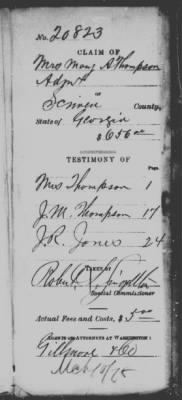 No. 20823
CLAIM OF
Mrs Mary A Thompson
Admx
OF
Scriven County,
State of Georgia
$656.00
TESTIMONY OF
Page.
Mrs Thompson 1
J. M. Thompson 17
J. R. Jones 24
TAKEN BY
Robert
Special Commissioner
Actual Fees and Costs, $5.00
AGENTS OR ATTORNEYS AT WASHINGTON:
Gillmore & Co